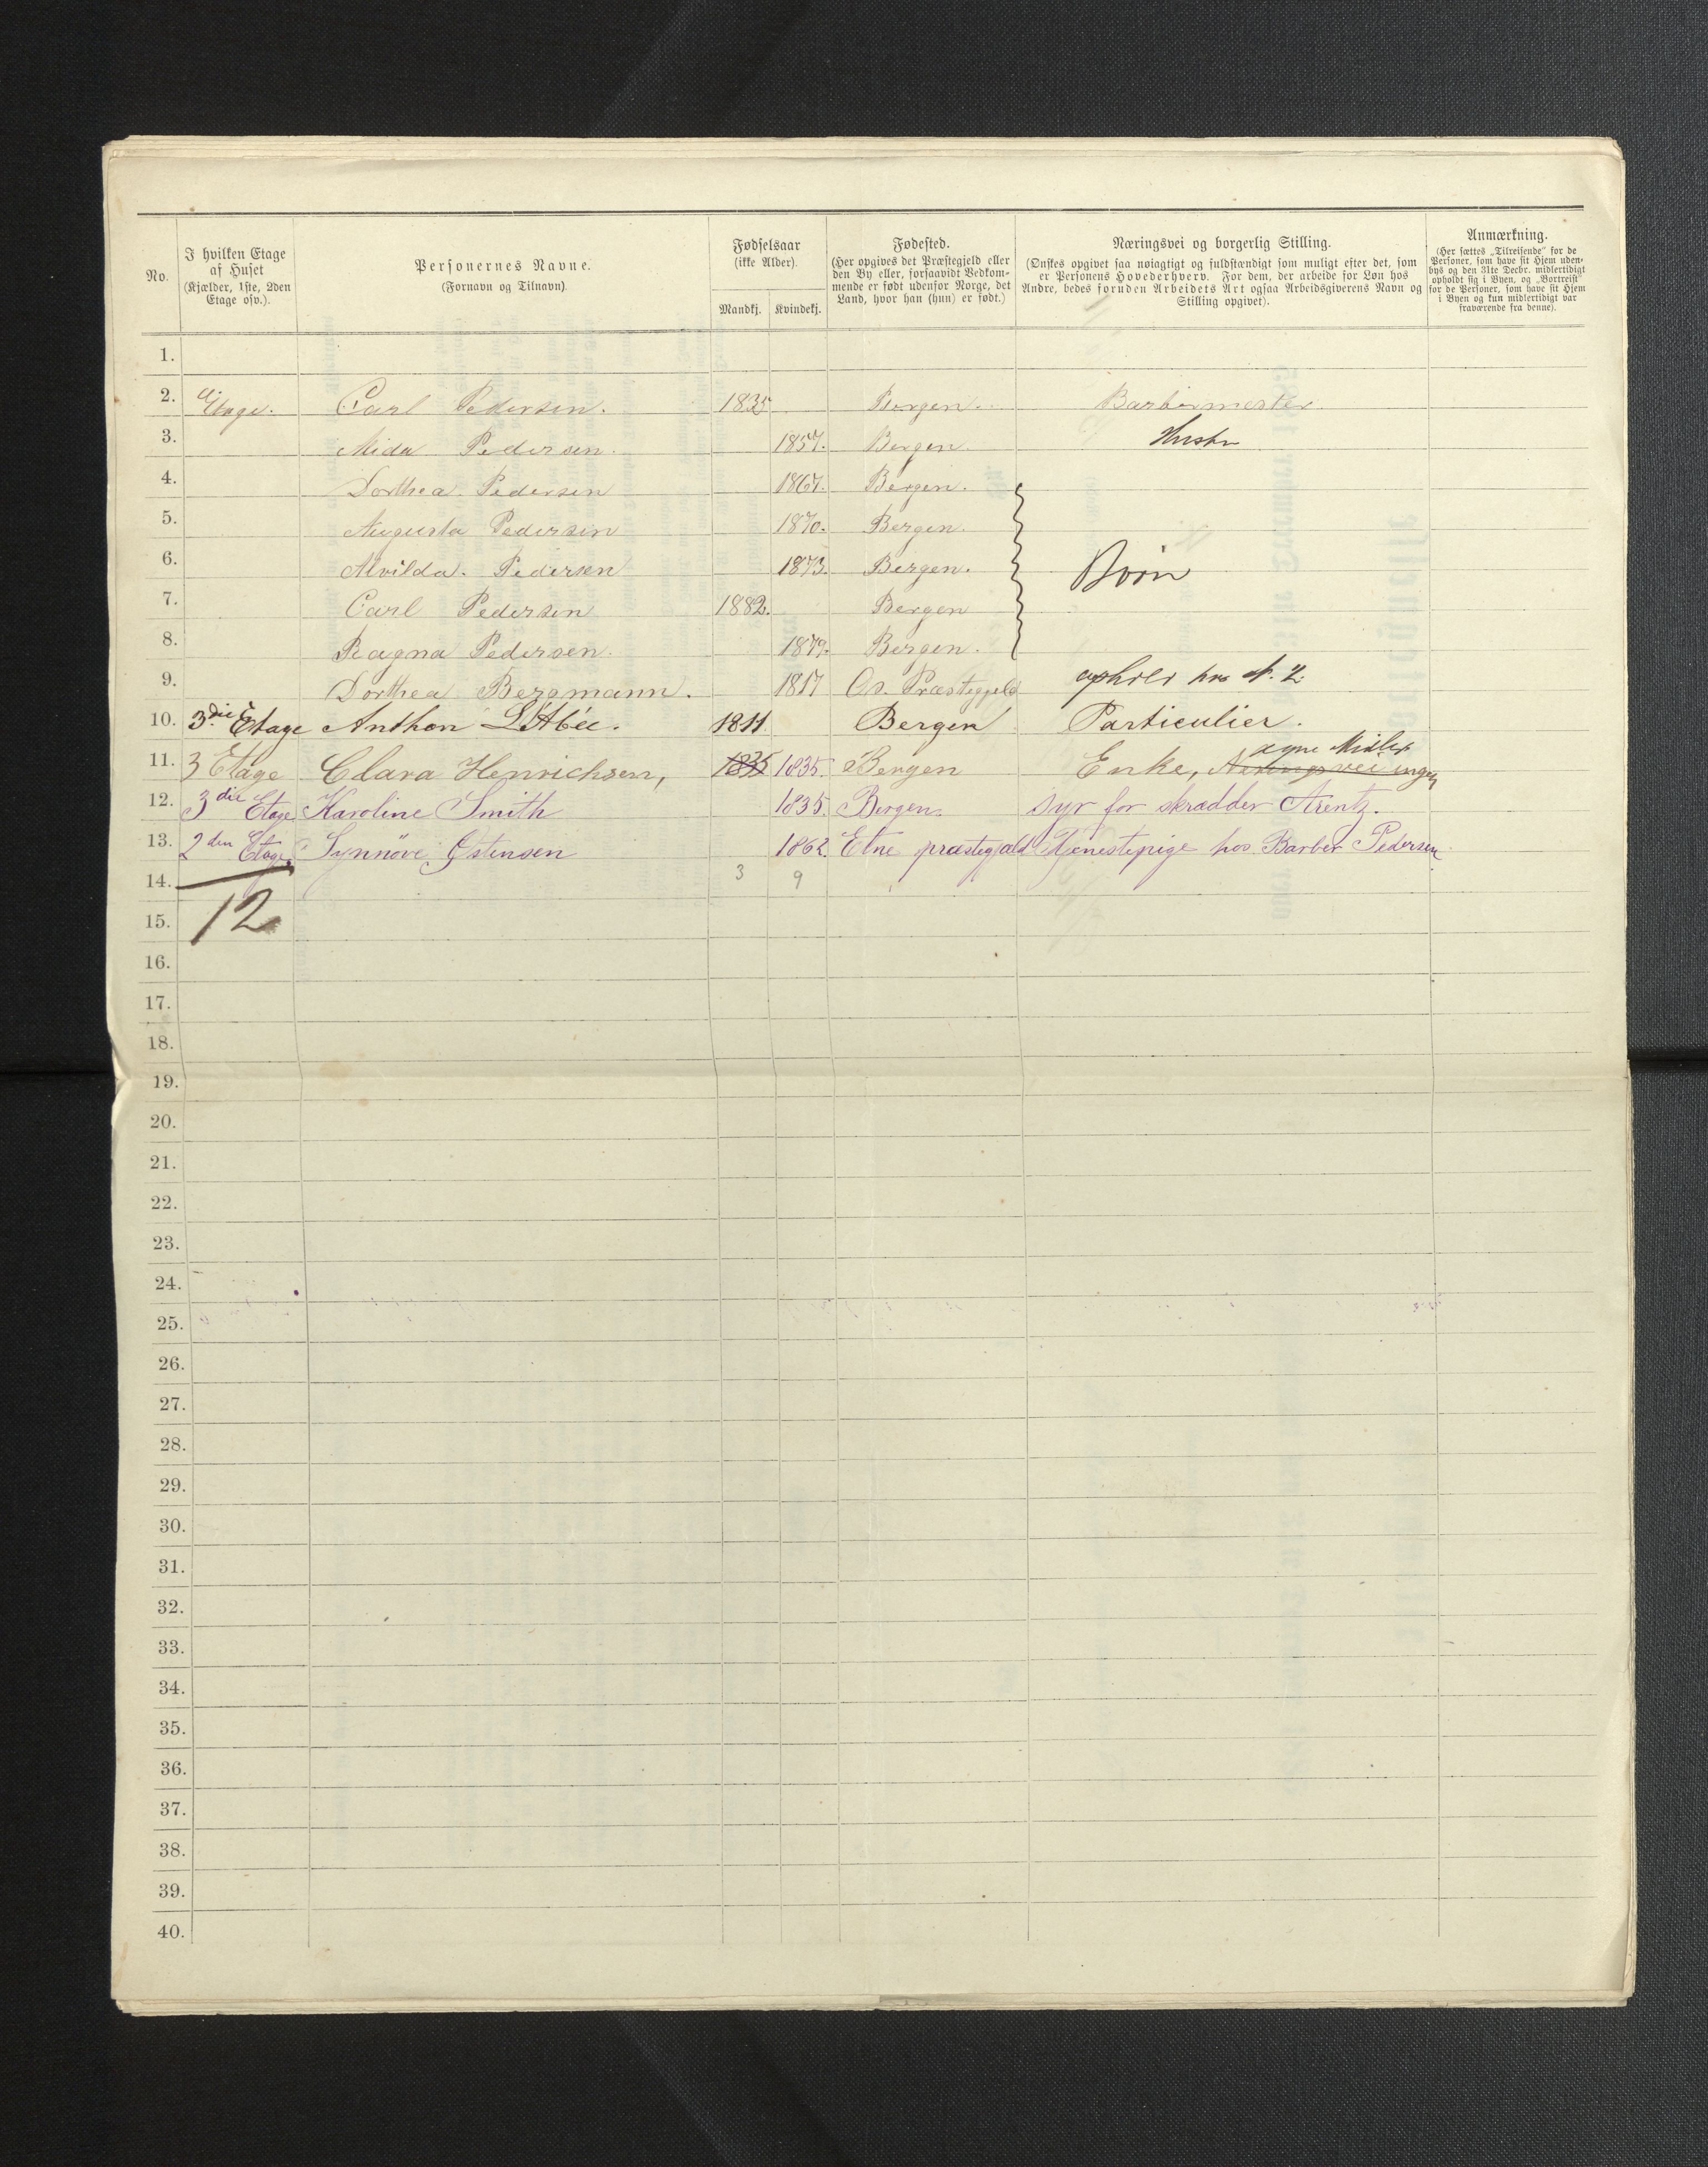 No.
I hvilken Etage af Huset (Kjælder, 1ste, 2den Etage osv.).
Personernes Navne. (Fornavn og Tilnavn).
Fødselsaar (ikke Alder).
Mandkj. Kvindekj.
Fødested. (Her opgives det Præstegjeld eller den By eller, forsaavidt Vedkommende er født udenfor Norge, det Land, hvor han (hun) er født.)
Næringsvei og borgerlig Stilling. (Ønskes opgivet saa nøiagtigt og fuldstændigt som muligt efter det, som er Personens Hovederhverv. For dem, der arbeide for Løn hos Andre, bedes foruden Arbeidets Art ogsaa Arbeidsgiverens Navn og Stilling opgivet).
Anmærkning. (Her sættes „Tilreisende" for de Personer, som have sit Hjem udenbys og den 31te Decbr. midlertidigt opholdt sig i Byen, og „Bortreist" for de Personer, som have sit Hjem i Byen og kun midlertidigt var fraværende fra denne).
1.
2. Etage. Carl Pedersen. 1835 Bergen. Barbermester
3. Mida Pedersen. 1857. Bergen. Hustru
4. Dorthea Pedersen 1867. Bergen.
5. Augusta Pedersen 1870. Bergen.
6. Alvilda. Pedersen 1873. Bergen. Børn
7. Carl Pedersen 1882. Bergen
8. Ragna Pedersen. 1879. Bergen.
9. Dorthea Bergmann. 1817 Os. Præstegjeld ophold hos N. 2
10. 3die Etage Anthon L'Abée. 1811 Bergen Particulier.
egne Midler
11. 3 Etage Clara Henrichsen, 1835 1835. Bergen Enke, Næringsvei ingen
12. 3die Etage Karoline Smith 1835. Bergen. Syr for skrædder Arentz.
13. 2den Etage. Synnöve Østensen 1862. Etne præstegjæld Tjenestepige hos Barber Pedersen
14. 3 9
15. 12
16.
17.
18.
19.
20.
21.
22.
23.
24.
25.
26.
27.
28.
29.
30.
31.
32.
33.
34.
35.
36.
37.
38.
39.
40.